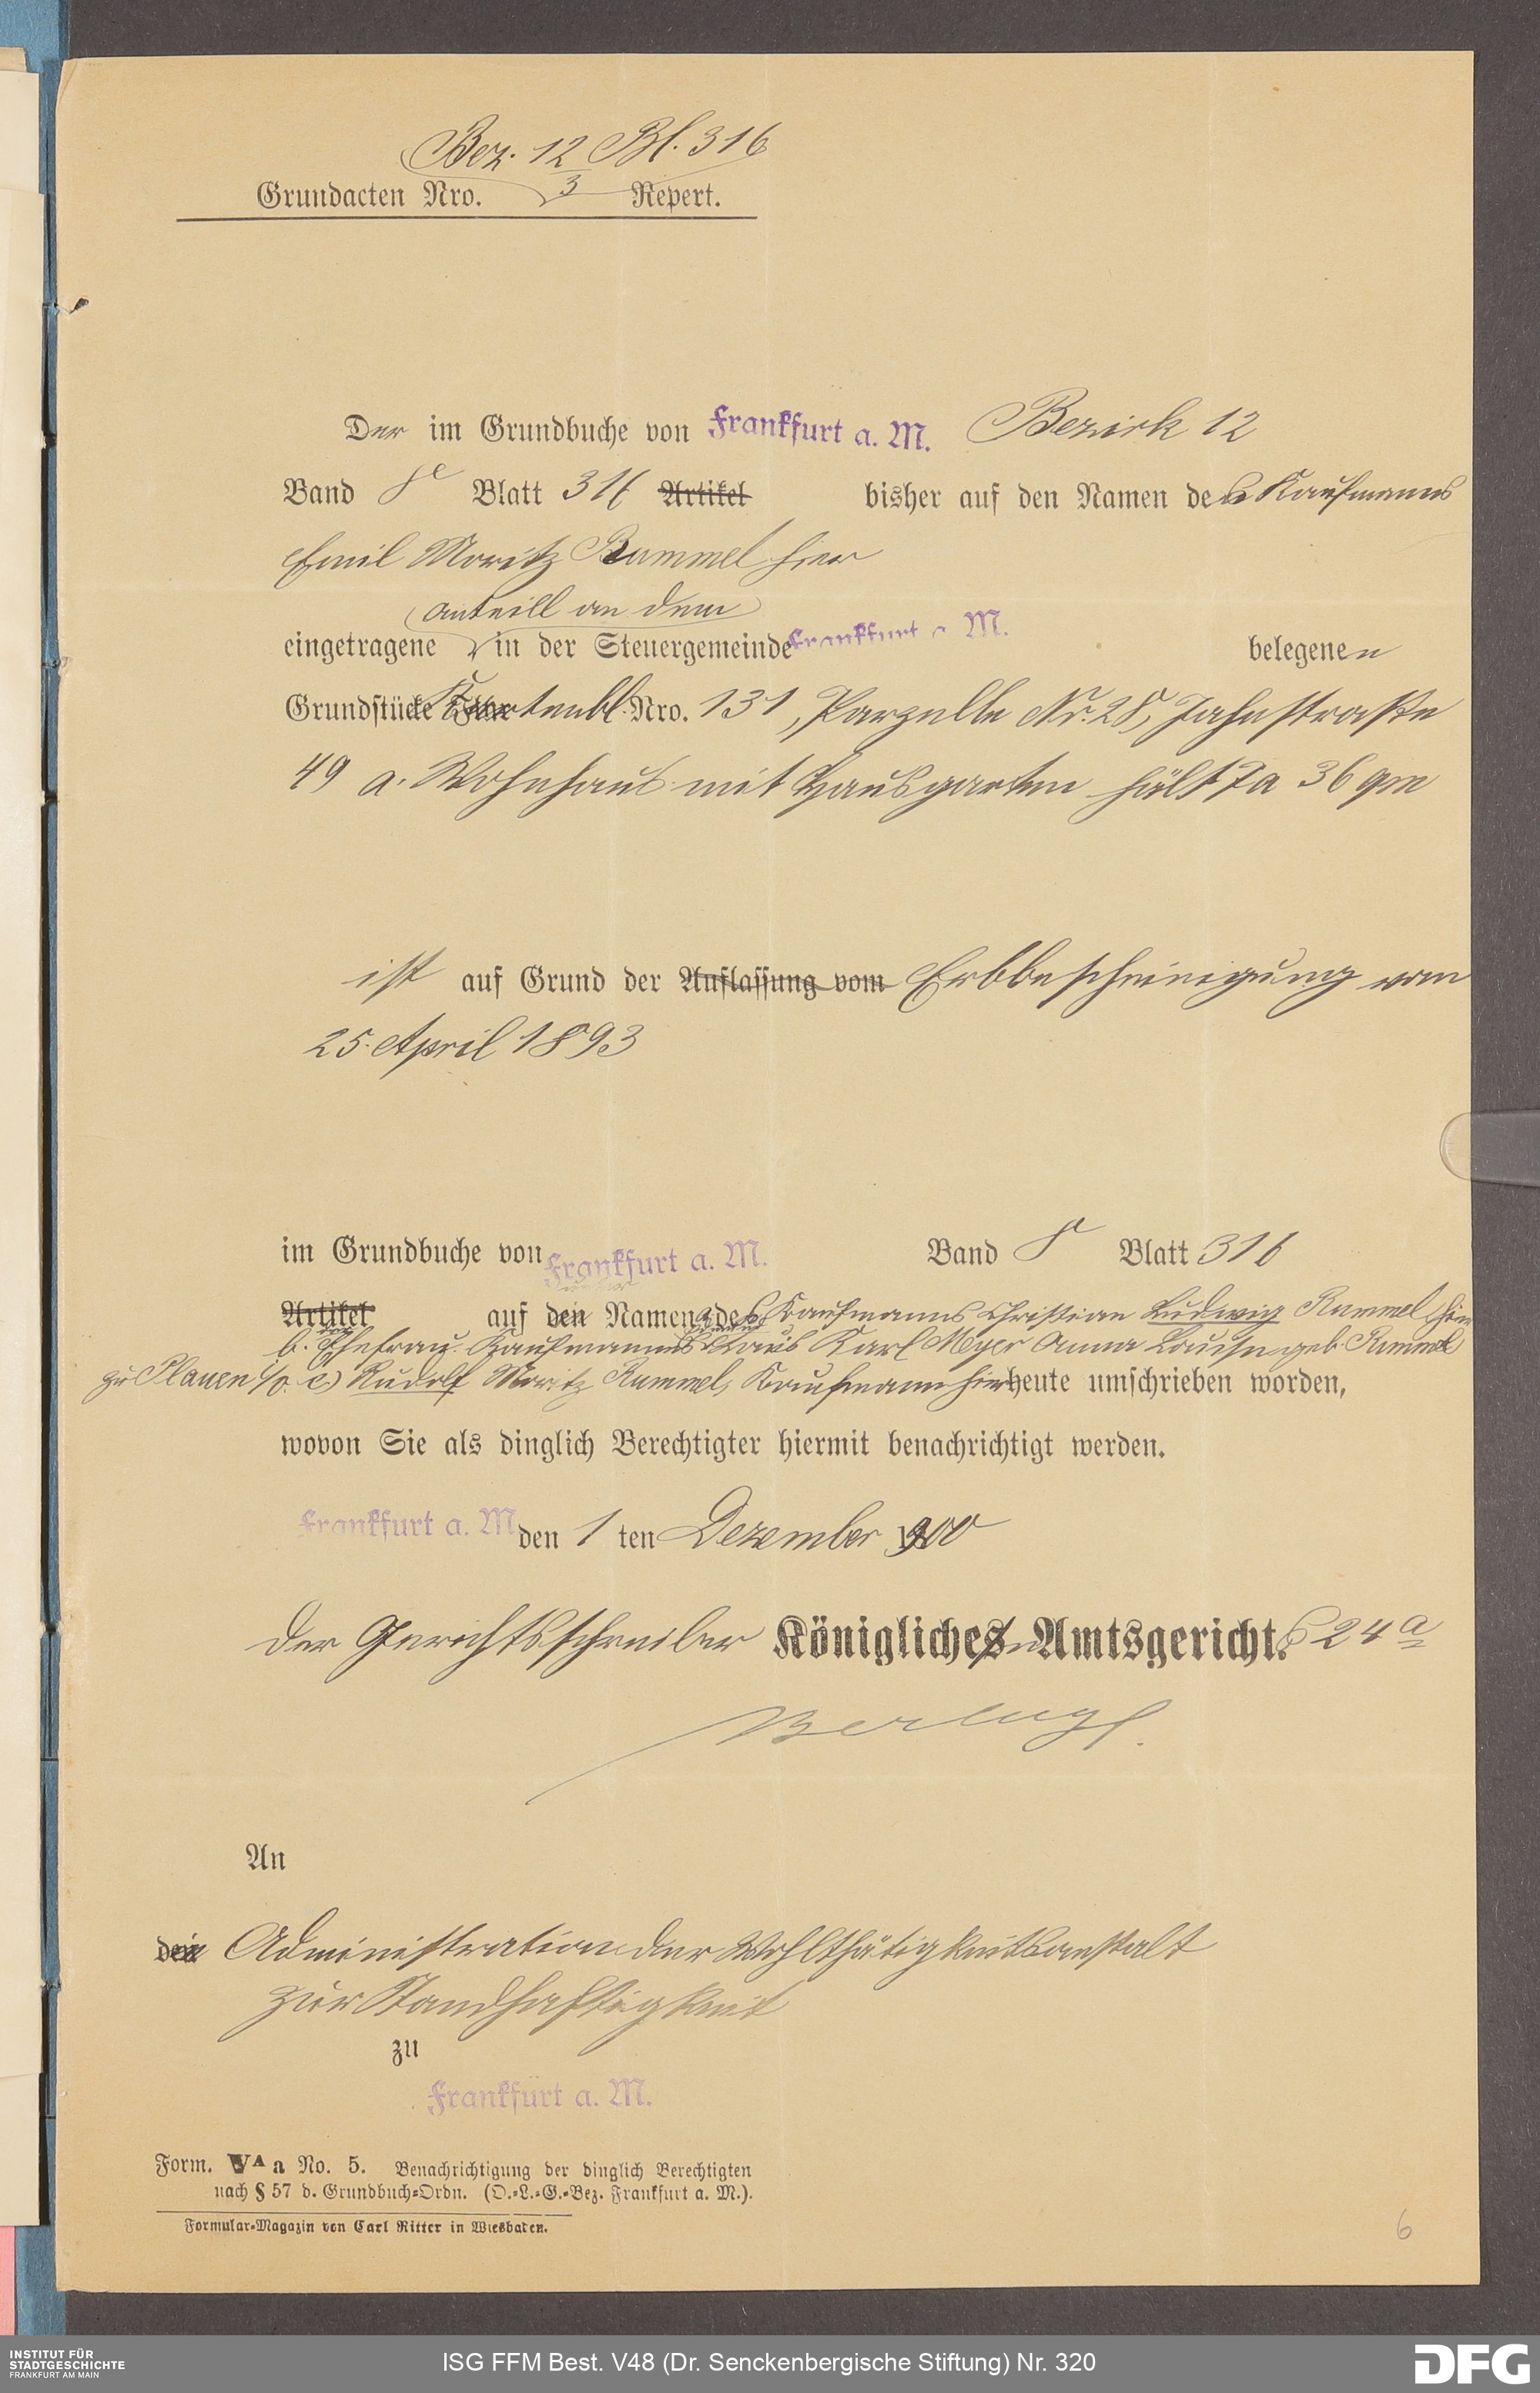 Bez. 12 Bl. 316
3
Grundacten Nro. Repert.
Der im Grundbuche von Frankfurt a. M. Bezirk 12
Band 8 Blatt 316 Artikel bisher auf den Namen des Kaufmanns
Emil Moritz Rammel hier
Anteill an dem
eingetragene in der Steuergemeinde Frankfurt a. M. belegenen
Grundstücke Kartenbl. Nro. 131, Parzelle Nr. 28, Jahnstraße
49 a. Wohnhaus mit Hausgarten hält 7 a 36 qm
ist auf Grund der Auflassung vom Erbbescheinigung vom
25. April 1893
im Grundbuche von Frankfurt a. M. Band 8 Blatt 316
Artikel auf den Namen des Kaufmanns Christian Ludwig Rammel hier
b. Ehefrau Kaufmanns Karl Meyer Anna Louise geb. Rammel
zu Plauen i/v. c) Rudolf Moritz Rammel, Kaufmann hier heute umschrieben worden,
wovon Sie als dinglich Berechtigter hiermit benachrichtigt werden.
Frankfurt a. M. den 1 ten Dezember 900
Der Gerichtsschreiber Königlichen Amtsgerichts 24 a
An
die Administration der Wohlthätigkeitsanstalt
zur Standhaftigkeit
zu
Frankfurt a. M.
Form. V A a No. 5. Benachrichtigung der dinglich Berechtigten
nach § 57 d. Grundbuch-Ordn. (O.-L.-G.-Bez. Frankfurt a. M.).
Formular-Magazin von Carl Ritter in Wiesbaden.
6
INSTITUT FÜR
STADTGESCHICHTE
FRANKFURT AM MAIN
ISG FFM Best. V48 (Dr. Senckenbergische Stiftung) Nr. 320
DFG